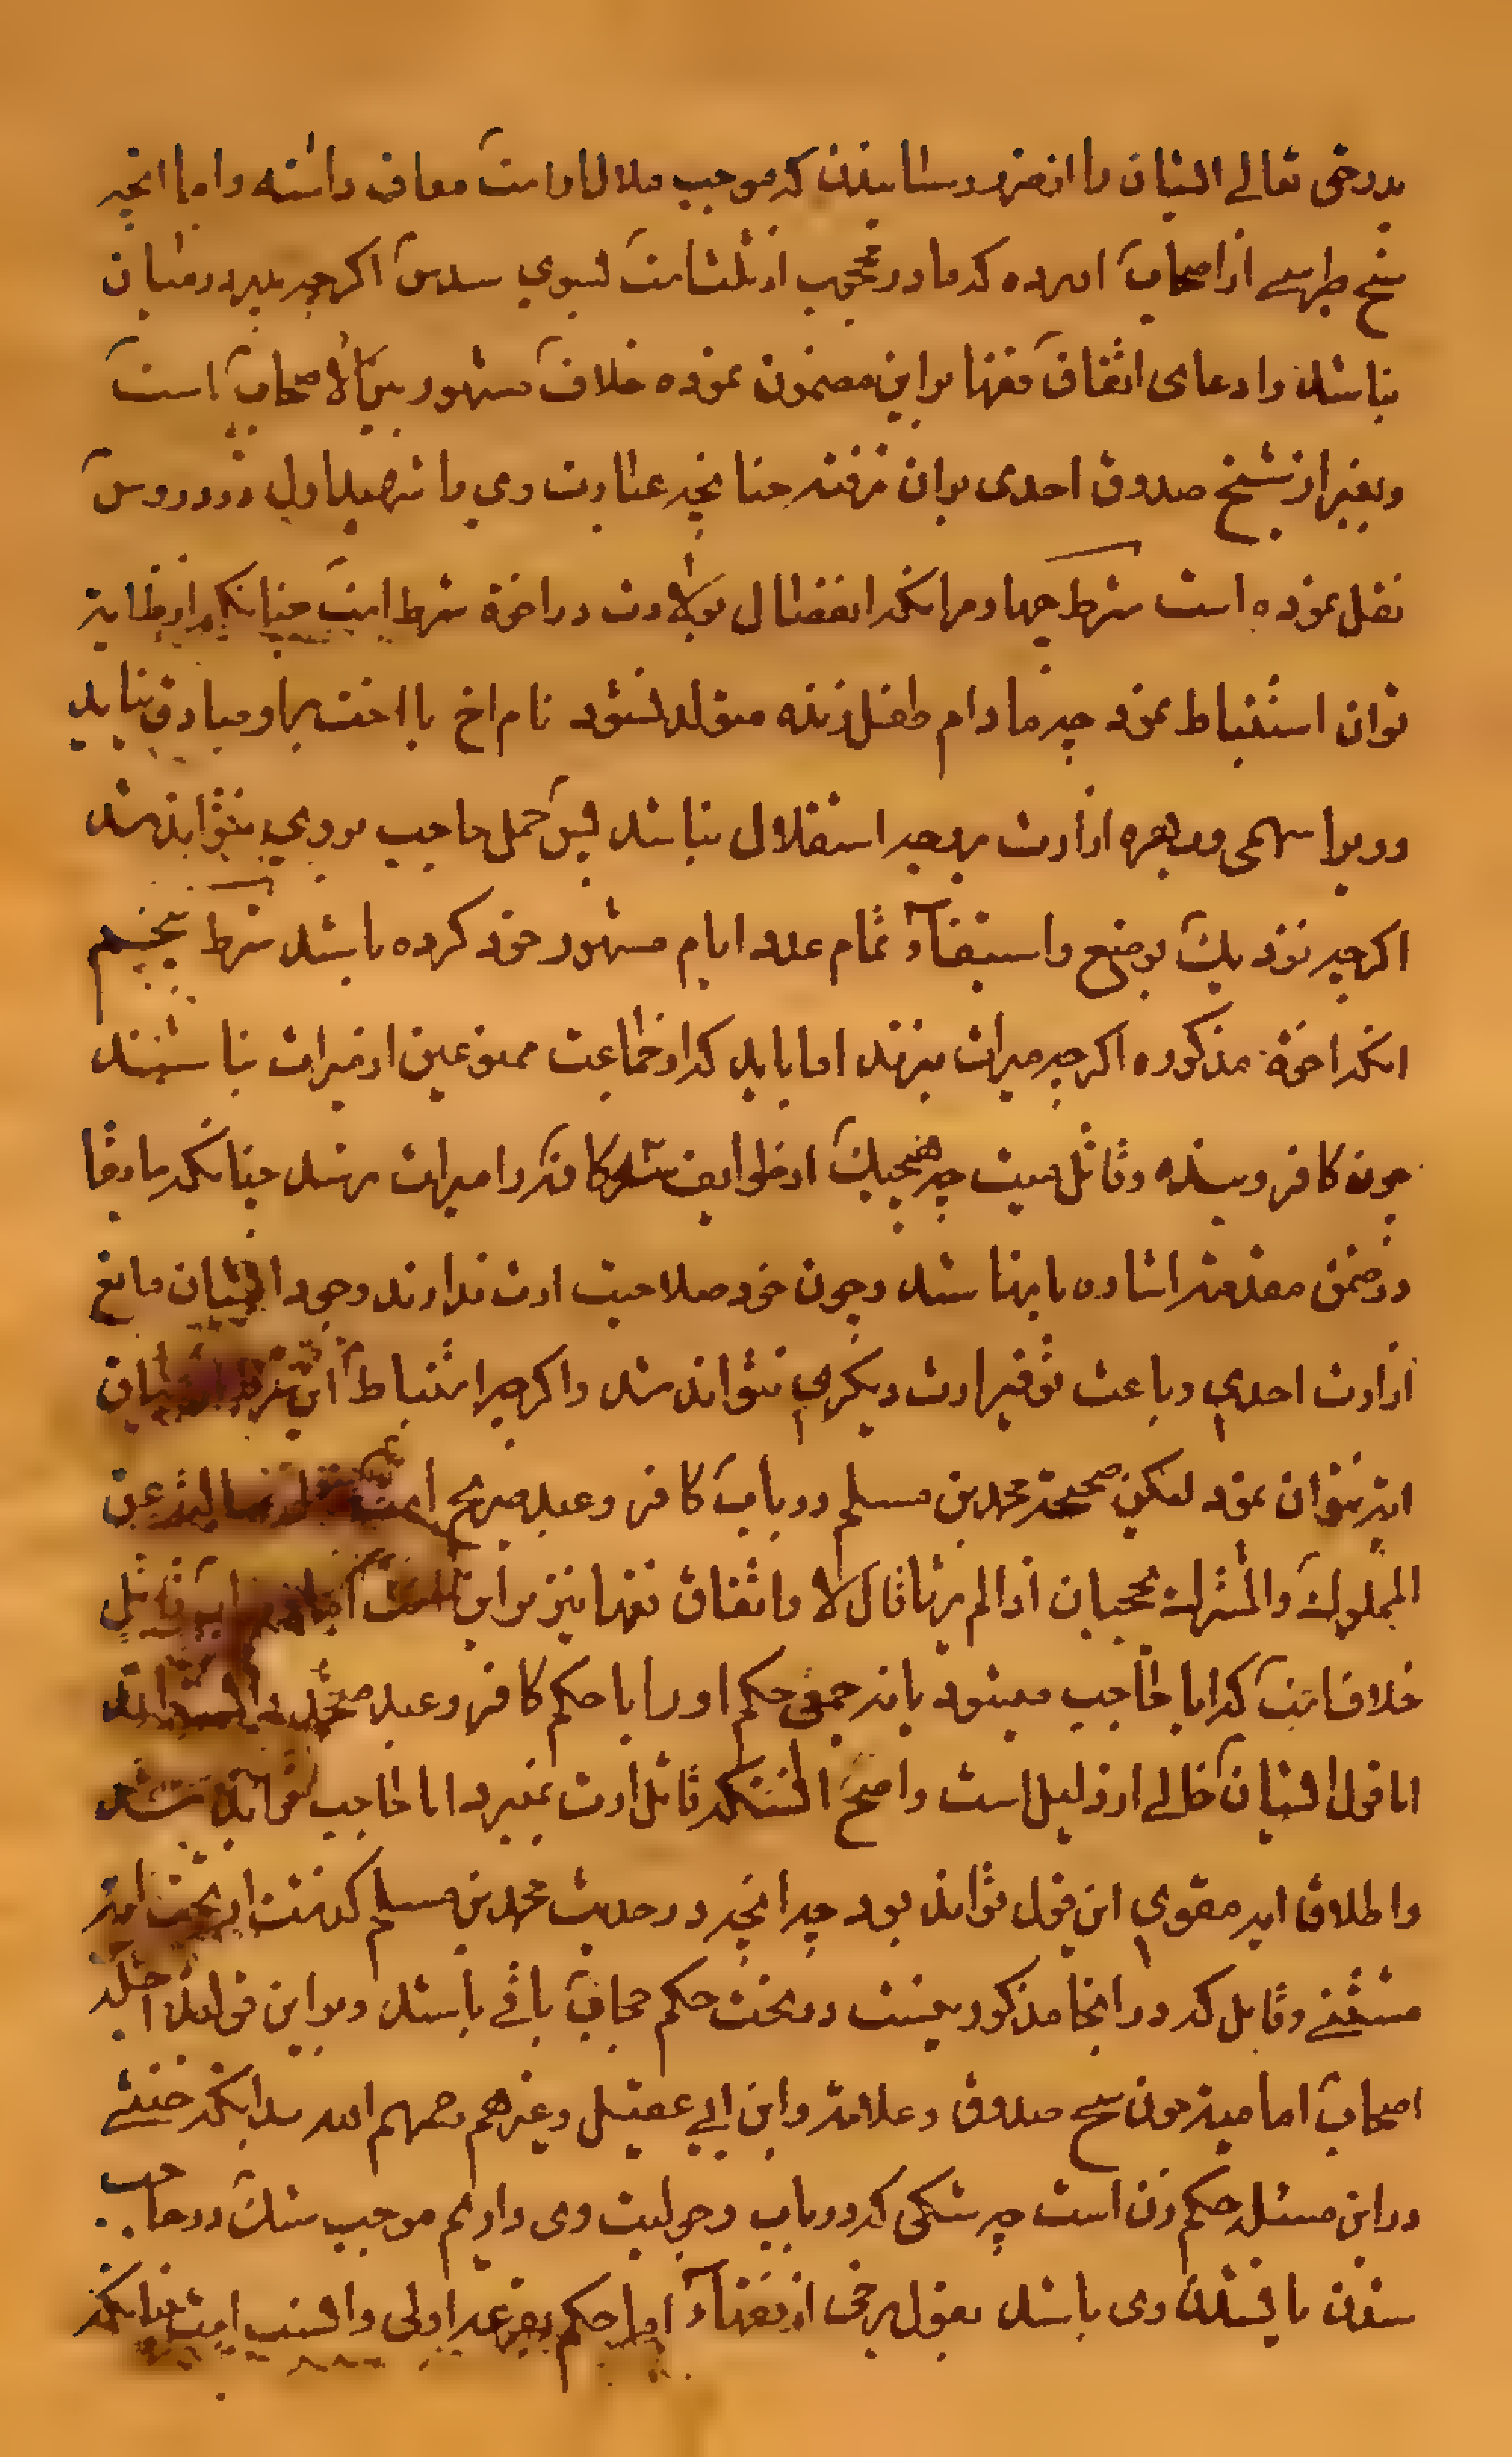 پدر حق تعالی ایشان را از ضرر رسانیدن که موجب ملال مادر است معاف داشته و اما انچه
شیخ طبرسی از اصحاب آورده که مادر محجوب از ثلث است بسوی سدس اگرچه پدر در میان
نباشد و ادعای اتفاق فقها بر این مضمون نموده خلاف مشهور بین الاصحاب است
و بغیر از شیخ صدوق احدی بران نرفته چنانچه عبارت وی را شهید اول در دروس
نقل نموده است شرط چهارم انکه انفصال بولادت در اخوة شرط است چنانکه از ظاهر
توان استنباط نمود چه مادام طفل زنده متولد نشود نام اخ یا اخت بر او صادق نیاید
و ویرا سهمی و بهره از ارث بوجه استقلال نباشد پس حمل حاجب بودی نتواند شد
اگرچه نزدیک بوضع و استیفاء تمام عدد ایام مشهور خود کرده باشد شرط پنجم
انکه اخوة مذکوره اگرچه میراث نبرند اما باید که از جماعت ممنوعین از میراث نباشند
چون کافر و بنده و قاتل میت چه هیچیک از طوایف ثلثه کافر را میراث نرسد چنانکه سابقا
در ضمن مقدمه اشاره بانها شد و چون خود صلاحیت ارث ندارند وجود ایشان مانع
از ارث احدی و باعث توفیر ارث دیگری نتواند شد و اگرچه استنباط این شرط از
ایه نتوان نمود لیکن صحیحه محمد بن مسلم در باب کافر و عبد صریح است سالته عن
المملوک و المشرک یحجبان اذا لم یرثا قال لا و اتفاق فقها نیز بر این است اما در قاتل
خلاف است که ایا حاجب میشود یا نه جمعی حکم او را با حکم کافر و عبد متحد دانسته اند
اما قول ایشان خالی از دلیل است و اصح انستکه قاتل ارث نمیبرد اما حاجب تواند شد
و اطلاق ایه مقوی این قول تواند بود چه انچه در حدیث محمد بن مسلم گذشت از تحت ایه
مستثنی و قاتل که در انجا مذکور نیست در تحت حکم حجاب باقی باشد و بر این قول
اصحاب امامیه چون شیخ صدوق و علامه و ابن ابی عقیل و غیرهم رحمهم الله بدانکه خنثی
در این مسئله حکم زن است چه شکی که در باب رجولیت وی داریم موجب شک در حاجب
شدن یا نشدن وی باشد بقول برخی از فقهاء اما حکم بقرعه اولی و انسب است چنانکه